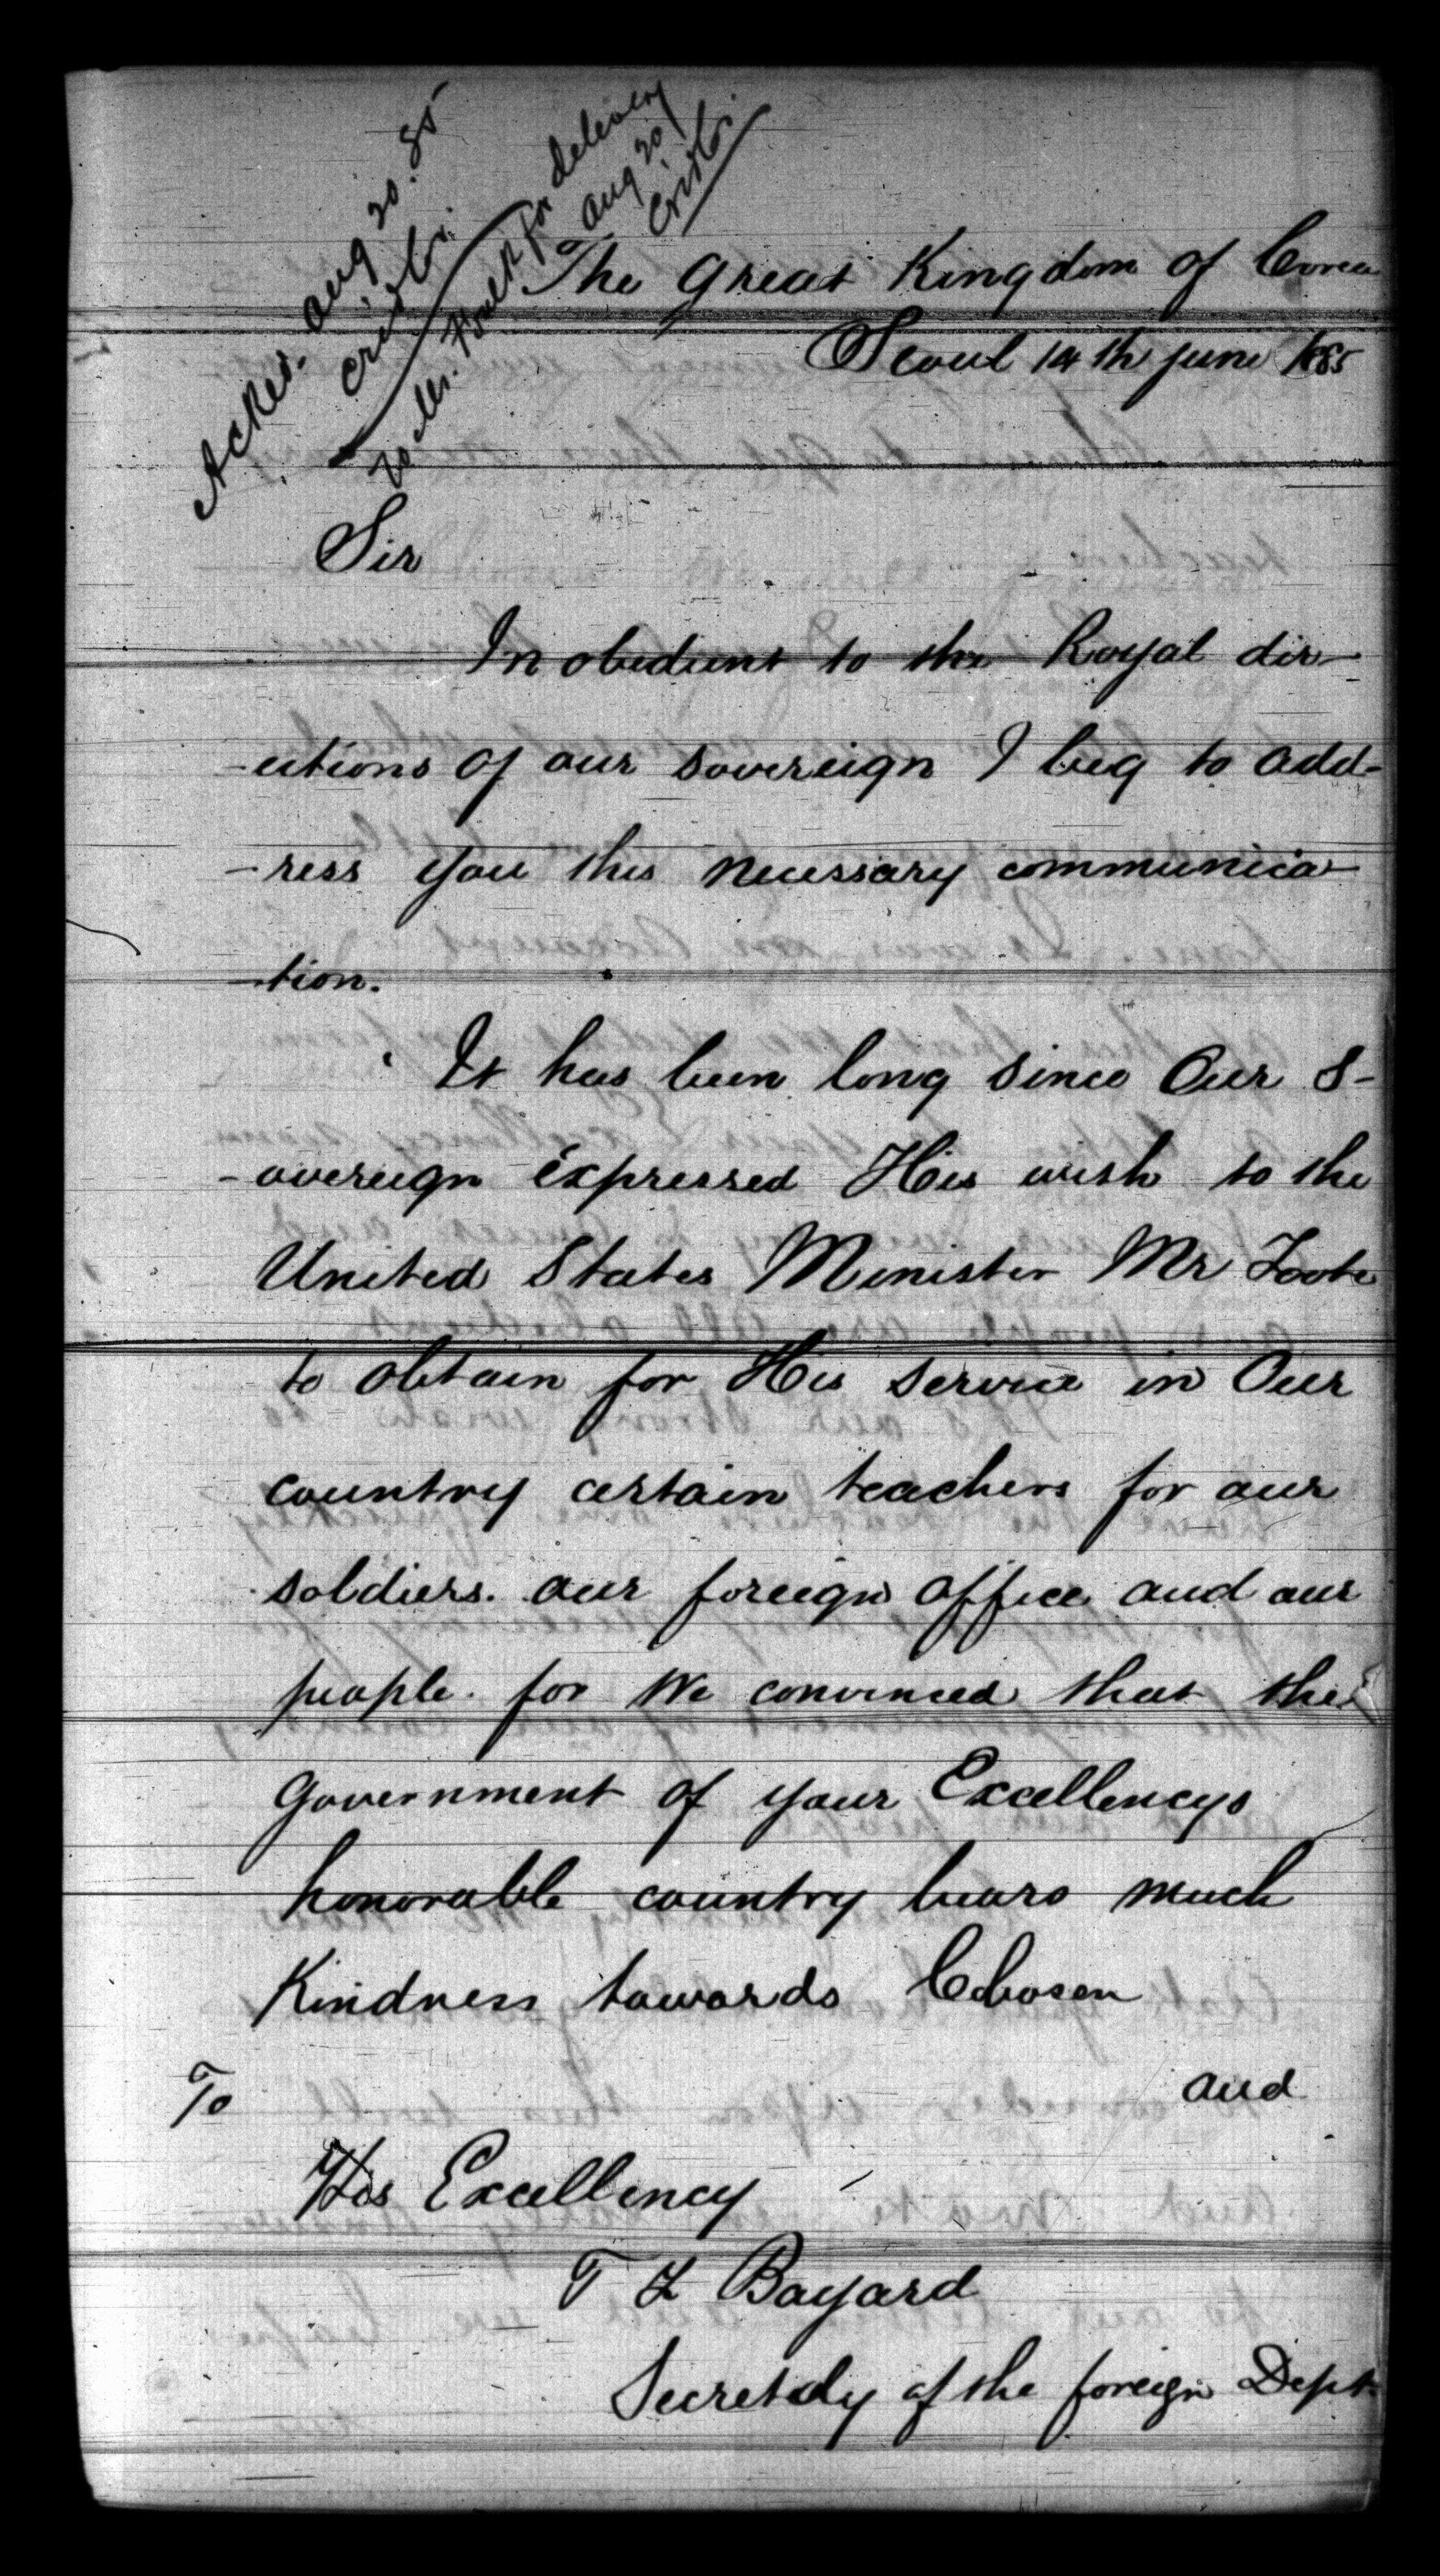 Acked. Aug 20. 85
to Mr. Foulk for delivery
Aug 20
The Great Kingdom of Corea
Seoul 14th June 1885
Sir
In obedient to the Royal dir-
-ections of our sovereign I beg to add-
-ress you this necessary communica-
-tion.
It has been long since Our S-
-overeign expressed His wish to the
United States Minister Mr Foote
to obtain for His service in Our
country certain teachers for our
soldiers. our foreign office and our
people. for we convinced that the
Government of your Excellencys
honorable country bears much
Kindness towards Chosen
and
To
His Excellency
T F Bayard
Secretaly of the foreign Dept.